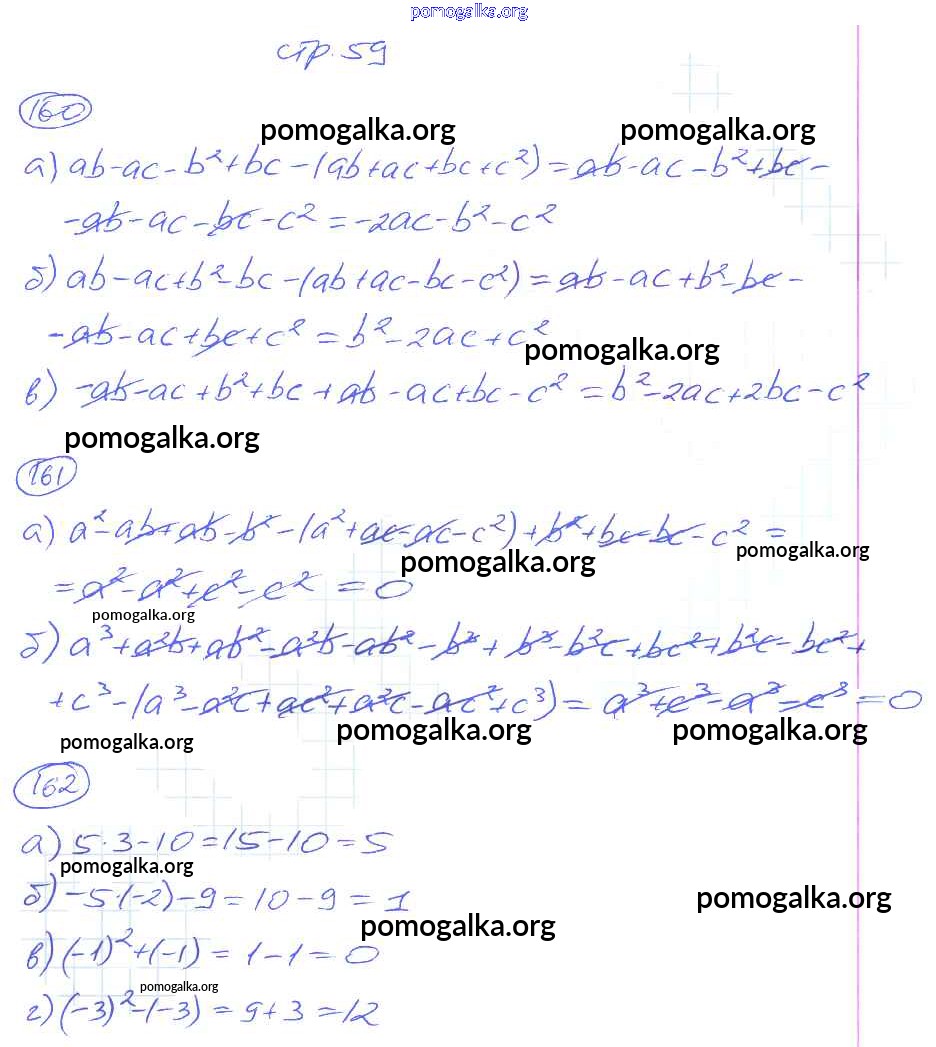 pomogalka.org
стр. 59
160
pomogalka.org pomogalka.org
а) ab-ac-b²+bc-(ab+ac+bc+c²)=ab-ac-b²+bc-
-ab-ac-bc-c²=-2ac-b²-c²
б) ab-ac+b²-bc-(ab+ac-bc-c²)=ab-ac+b²-bc-
-ab-ac+bc+c²=b²-2ac+c²
pomogalka.org
в) -ab-ac+b²+bc+ab-ac+bc-c²=b²-2ac+2bc-c²
pomogalka.org
161
а) a²-ab+ab-b²-(a²+ac-ac-c²)+b²+bc-bc-c²=
pomogalka.org pomogalka.org
=a²-a²+c²-c²=0
pomogalka.org
б) a³+a²b+ab²-a²b-ab²-b³+b³-b²c+bc²+b²c-bc²+
+c³-(a³-a²c+ac²+a²c-ac²+c³)=a³+c³-a³-c³=0
pomogalka.org pomogalka.org pomogalka.org
162
а) 5·3-10=15-10=5
pomogalka.org
б) -5·(-2)-9=10-9=1
pomogalka.org pomogalka.org
в) (-1)²+(-1)=1-1=0
pomogalka.org
г) (-3)²-(-3)=9+3=12